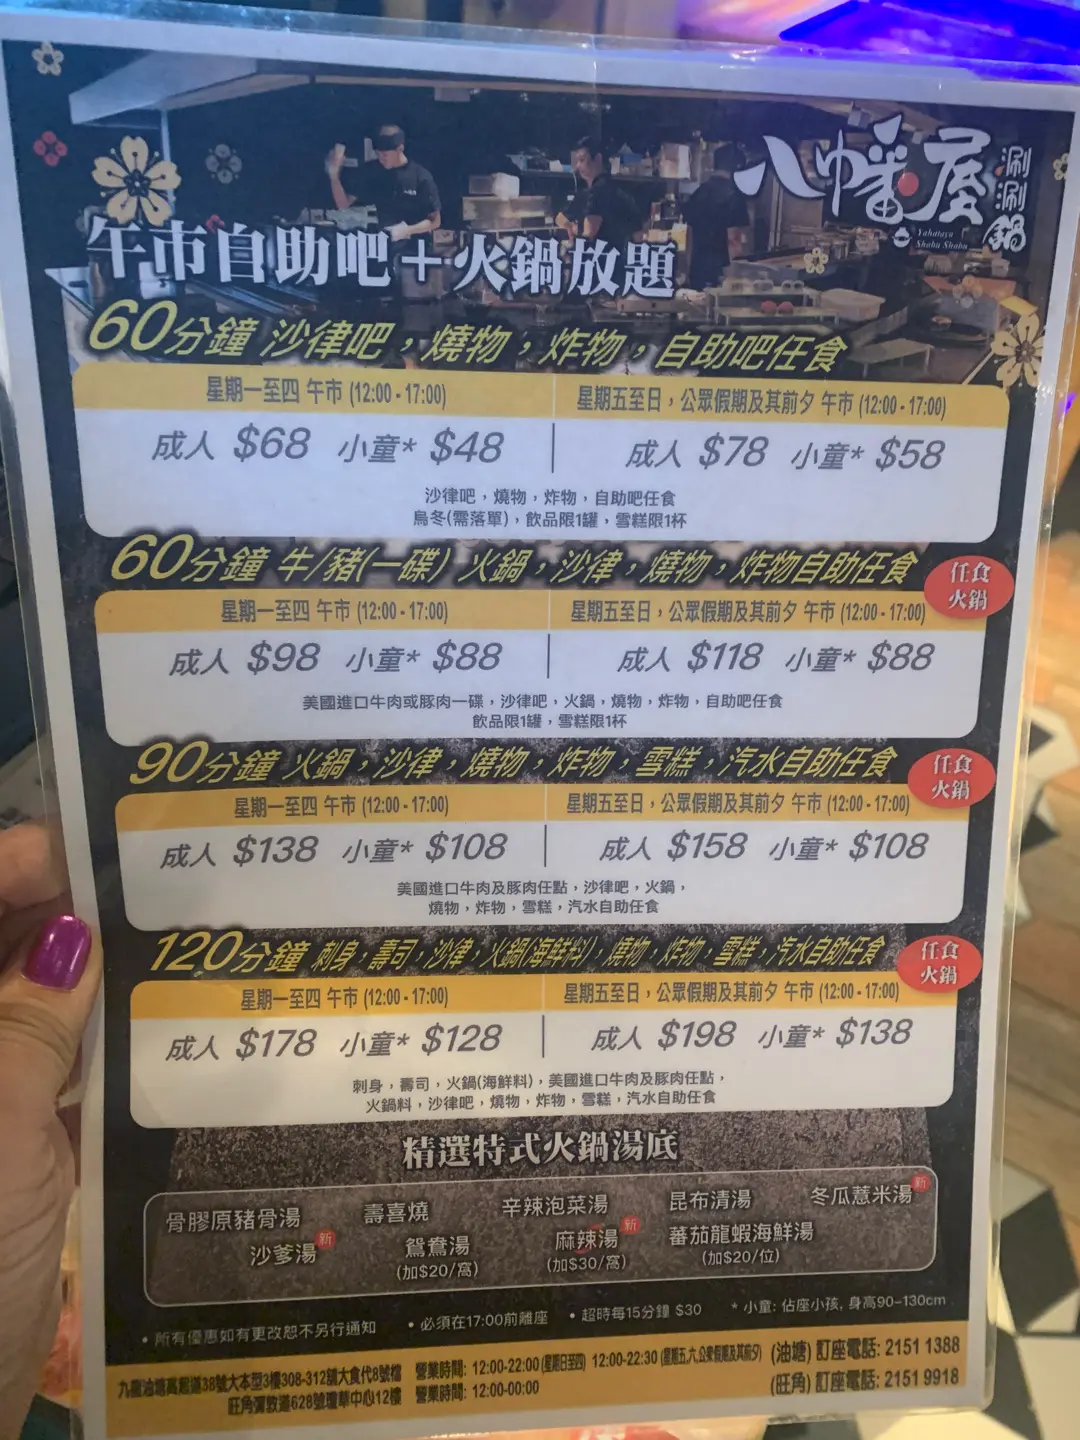 八幡屋
涮涮鍋
Yahataya
Shabu Shabu
午市自助吧＋火鍋放題
60分鐘 沙律吧，燒物，炸物，自助吧任食
星期一至四 午市 (12:00 - 17:00)
星期五至日，公眾假期及其前夕 午市 (12:00 - 17:00)
成人 $68 小童* $48
成人 $78 小童* $58
沙律吧，燒物，炸物，自助吧任食
烏冬(需落單)，飲品限1罐，雪糕限1杯
60分鐘 牛/豬(一碟) 火鍋，沙律，燒物，炸物自助任食
任食
火鍋
星期一至四 午市 (12:00 - 17:00)
星期五至日，公眾假期及其前夕 午市 (12:00 - 17:00)
成人 $98 小童* $88
成人 $118 小童* $88
美國進口牛肉或豚肉一碟，沙律吧，火鍋，燒物，炸物，自助吧任食
飲品限1罐，雪糕限1杯
90分鐘 火鍋，沙律，燒物，炸物，雪糕，汽水自助任食
任食
火鍋
星期一至四 午市 (12:00 - 17:00)
星期五至日，公眾假期及其前夕 午市 (12:00 - 17:00)
成人 $138 小童* $108
成人 $158 小童* $108
美國進口牛肉及豚肉任點，沙律吧，火鍋，
燒物，炸物，雪糕，汽水自助任食
120分鐘 刺身，壽司，沙律，火鍋(海鮮料)，燒物，炸物，雪糕，汽水自助任食
任食
火鍋
星期一至四 午市 (12:00 - 17:00)
星期五至日，公眾假期及其前夕 午市 (12:00 - 17:00)
成人 $178 小童* $128
成人 $198 小童* $138
刺身，壽司，火鍋(海鮮料)，美國進口牛肉及豚肉任點，
火鍋料，沙律吧，燒物，炸物，雪糕，汽水自助任食
精選特式火鍋湯底
骨膠原豬骨湯 壽喜燒 辛辣泡菜湯 昆布清湯 冬瓜薏米湯 新
沙爹湯 新 鴛鴦湯 麻辣湯 新 蕃茄龍蝦海鮮湯
(加$20/窩) (加$30/窩) (加$20/位)
• 所有優惠如有更改恕不另行通知 • 必須在17:00前離座 • 超時每15分鐘 $30 * 小童: 佔座小孩, 身高90–130cm
九龍油塘高超道38號大本型3樓308-312舖大食代8號檔 營業時間: 12:00-22:00 (星期日至四) 12:00-22:30 (星期五,六,公眾假期及其前夕) (油塘) 訂座電話: 2151 1388
旺角彌敦道628號瓊華中心12樓 營業時間: 12:00-00:00 (旺角) 訂座電話: 2151 9918